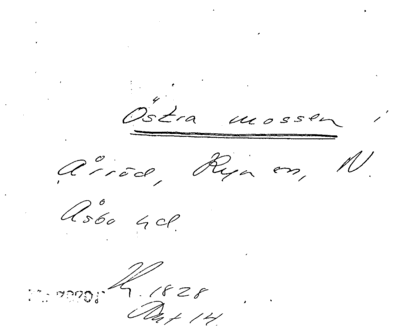 Östra mossen i
Åröd, Ryn en, N.
Åsbo hd.
1828
Akt 14.